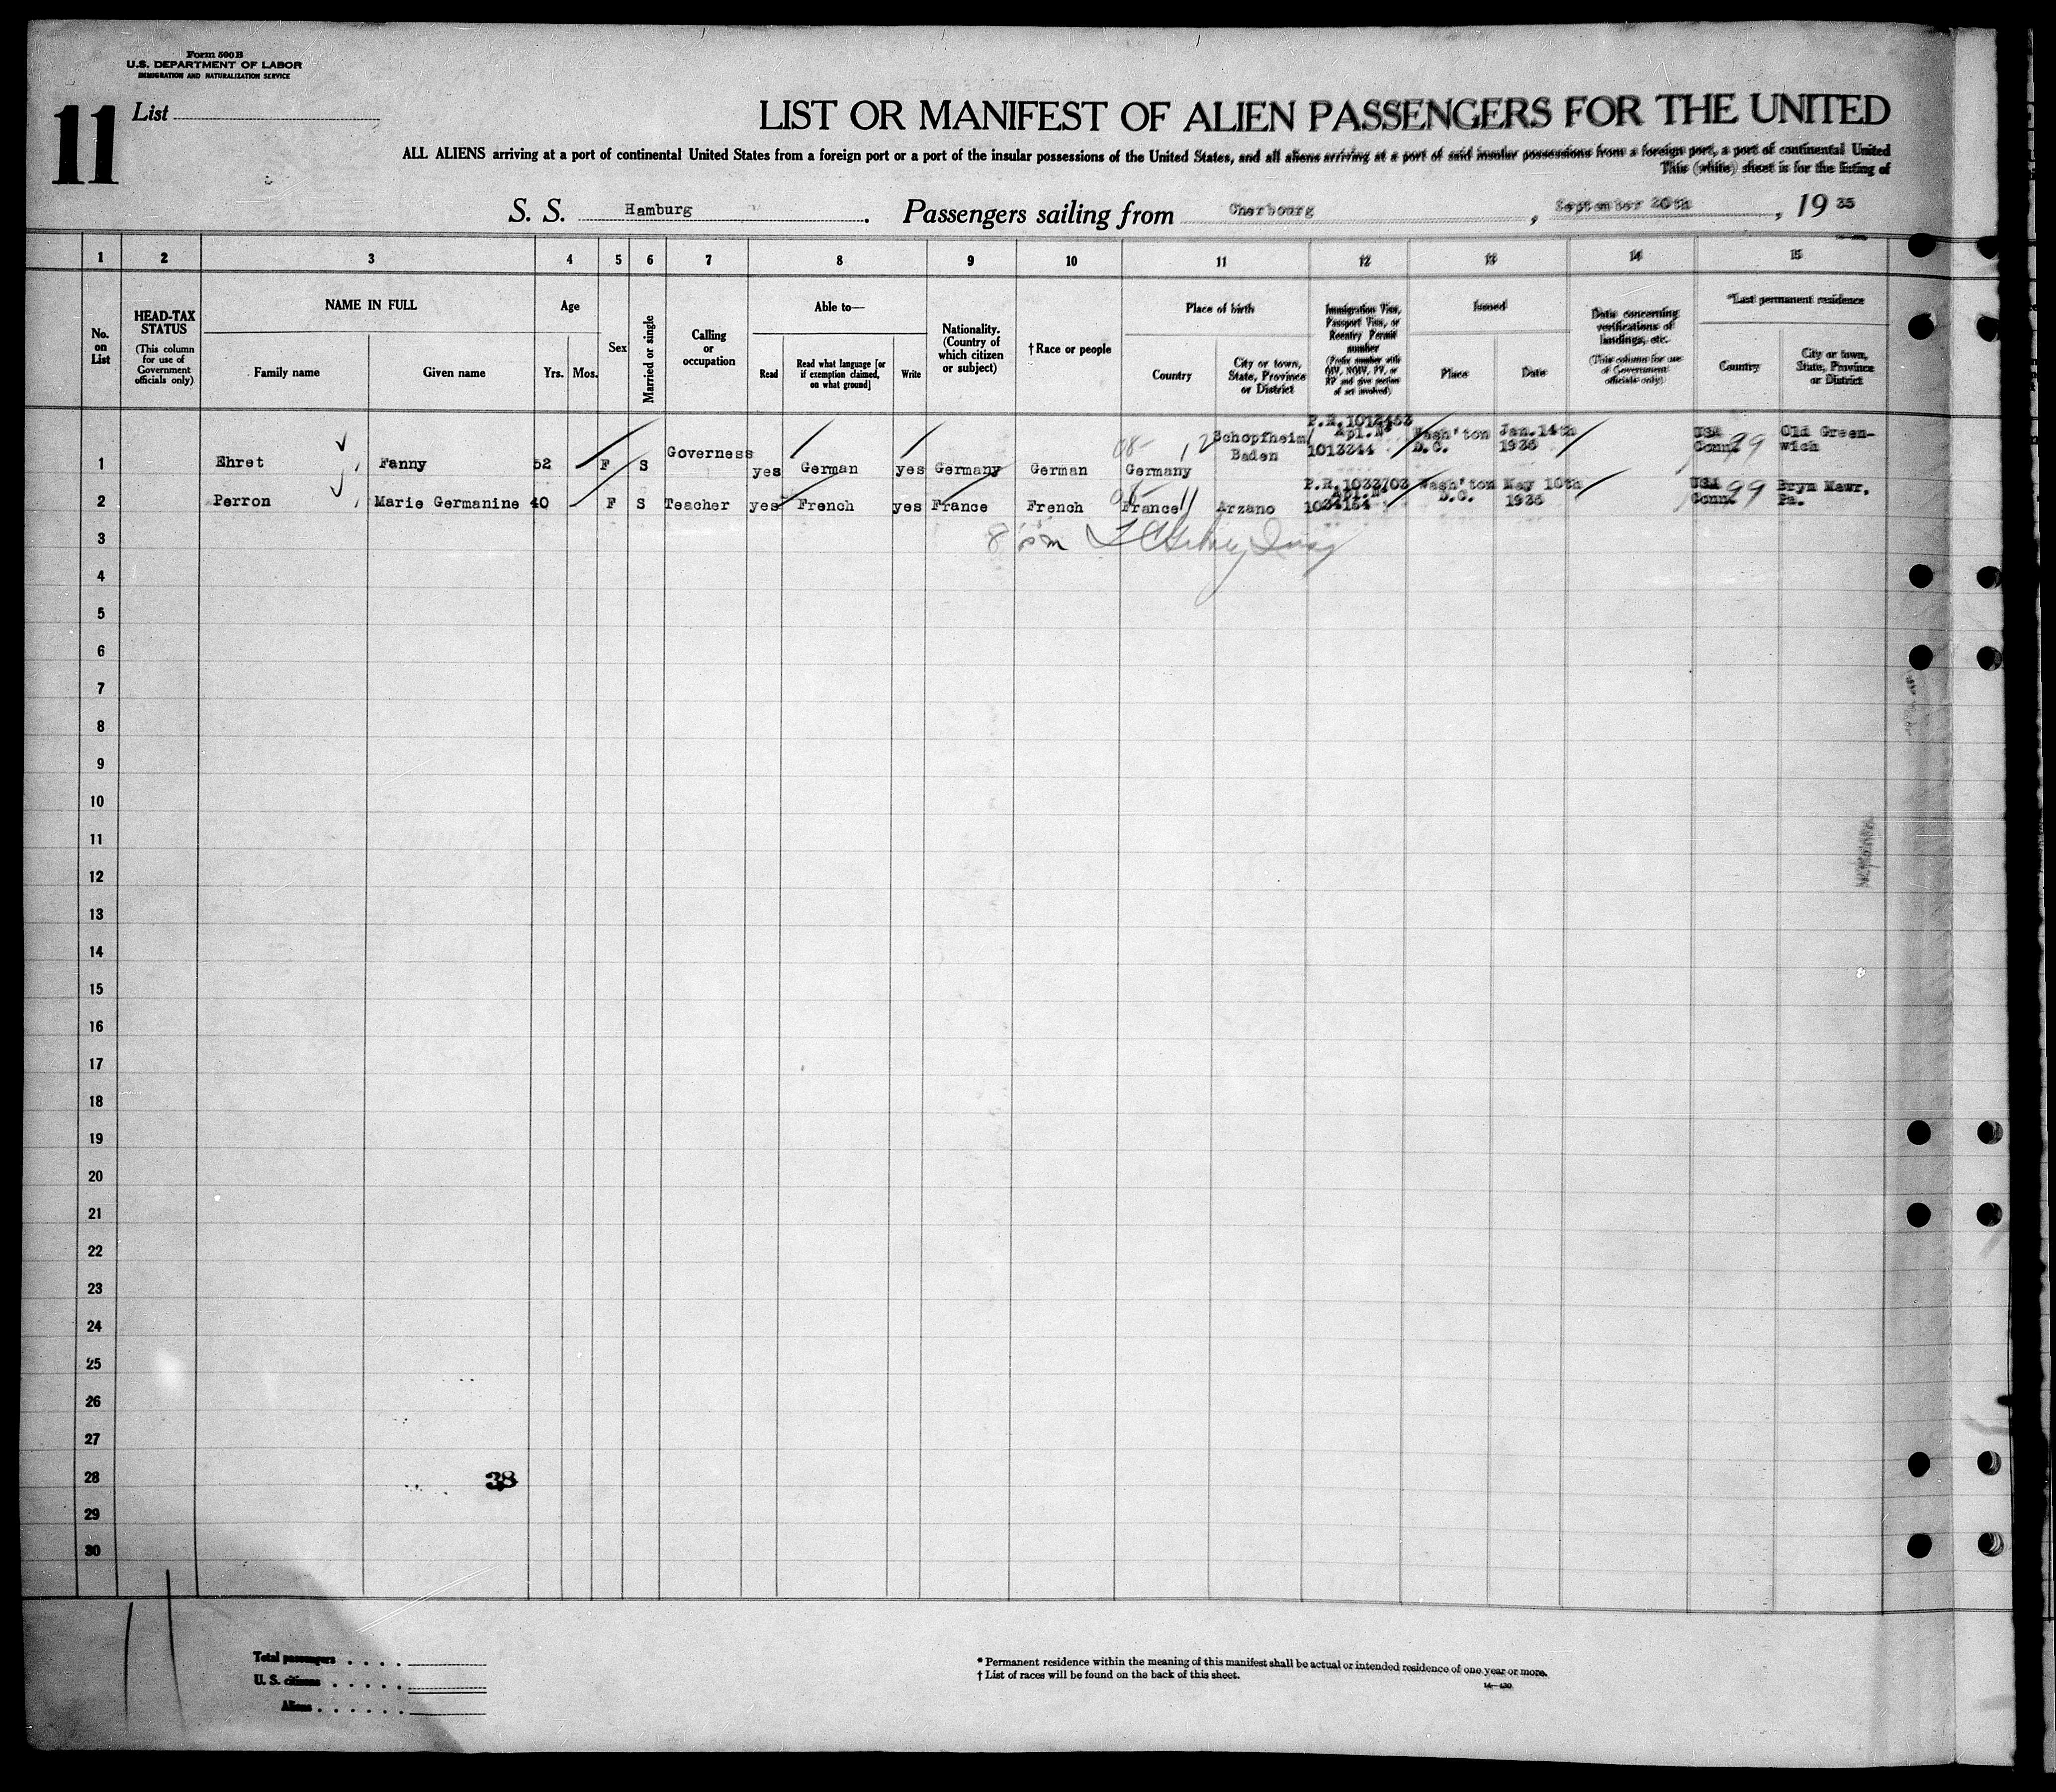 Form 500B
U.S. DEPARTMENT OF LABOR
IMMIGRATION AND NATURALIZATION SERVICE
11 List
LIST OR MANIFEST OF ALIEN PASSENGERS FOR THE UNITED
ALL ALIENS arriving at a port of continental United States from a foreign port or a port of the insular possessions of the United States, and all aliens arriving at a port of said insular possessions from a foreign port, a port of continental United
This (white) sheet is for the listing of
S. S. Hamburg. Passengers sailing from Cherbourg, September 20th, 1935
1 2 3 4 5 6 7 8 9 10 11 12 13 14 15
No. on List
HEAD-TAX STATUS (This column for use of Government officials only)
NAME IN FULL
Family name Given name
Age
Yrs. Mos.
Sex
Married or single
Calling or occupation
Able to—
Read
Read what language [or if exemption claimed, on what ground]
Write
Nationality. (Country of which citizen or subject)
†Race or people
Place of birth
Country
City or town, State, Province or District
Immigration Visa, Passport Visa, or Reentry Permit number
(Prefix number with QIV, NQIV, PV, or RP and give section of act involved)
Issued
Place Date
Data concerning verifications of landings, etc.
(This column for use of Government officials only)
*Last permanent residence
Country
City or town, State, Province or District
1 Ehret Fanny 52 F S Governess yes German yes Germany German Germany Schopfheim/Baden P.R.1012453 Apl.N° 1013344 Wash'ton D.C. Jan.14th 1935 USA Conn. 99 Old Greenwich
2 Perron Marie Germanine 40 F S Teacher yes French yes France French France Arzano P.R.1033703 Apl.N° 1034154 Wash'ton D.C. May 10th 1935 USA Conn. 99 Bryn Mawr, Pa.
3
4
5
6
7
8
9
10
11
12
13
14
15
16
17
18
19
20
21
22
23
24
25
26
27
28
38
29
30
Total passengers
U. S. citizens
Aliens
* Permanent residence within the meaning of this manifest shall be actual or intended residence of one year or more.
† List of races will be found on the back of this sheet.